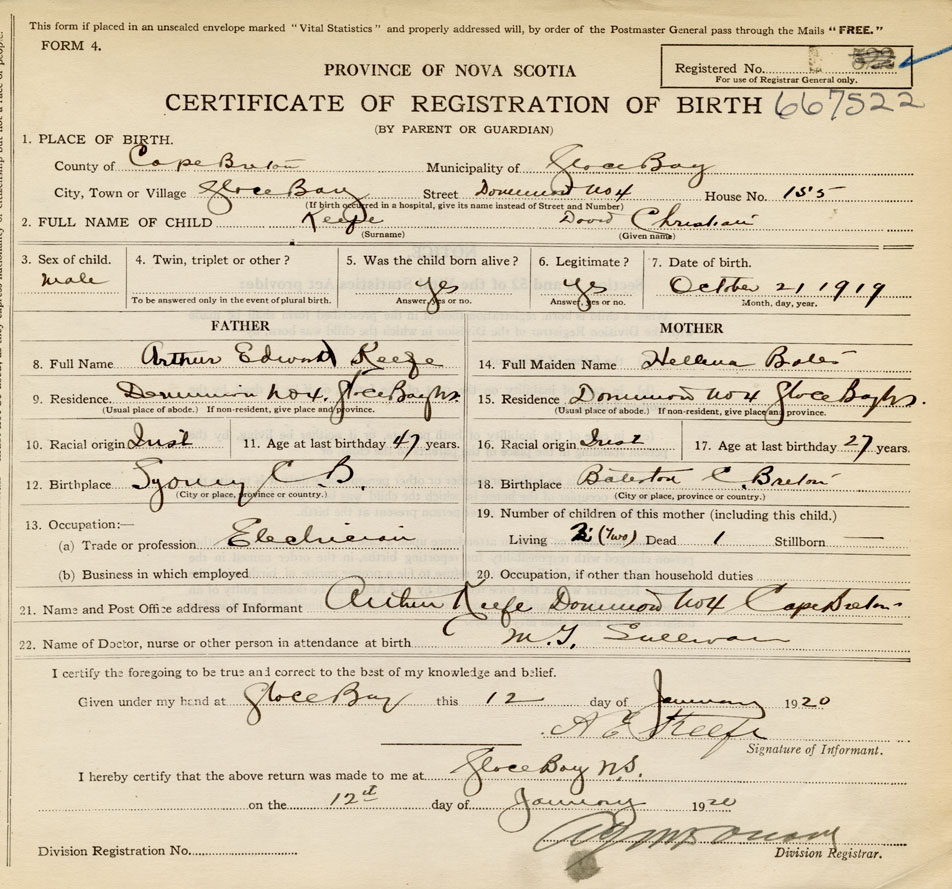 This form if placed in an unsealed envelope marked "Vital Statistics" and properly addressed will, by order of the Postmaster General pass through the Mails "FREE."
FORM 4.
Registered No.
For use of Registrar General only.
PROVINCE OF NOVA SCOTIA
CERTIFICATE OF REGISTRATION OF BIRTH 667522
(BY PARENT OR GUARDIAN)
1. PLACE OF BIRTH.
County of Cape Breton Municipality of Glace Bay
City, Town or Village Glace Bay Street Dominion No 4 House No. 155
(If birth occurred in a hospital, give its name instead of Street and Number)
2. FULL NAME OF CHILD Keefe David Christian
(Surname) (Given name)
3. Sex of child. 4. Twin, triplet or other ? 5. Was the child born alive ? 6. Legitimate ? 7. Date of birth.
Male yes yes October 21 1919
To be answered only in the event of plural birth. Answer, yes or no. Answer, yes or no. Month, day, year.
FATHER MOTHER
8. Full Name Arthur Edward Keefe 14. Full Maiden Name Hellena Bates
9. Residence. Dominion No 4. Glace Bay NS. 15. Residence Dominion No 4 Glace Bay NS.
(Usual place of abode.) If non-resident, give place and province. (Usual place of abode.) If non-resident, give place and province.
10. Racial origin Irist 11. Age at last birthday 47 years. 16. Racial origin Irist 17. Age at last birthday 27 years.
12. Birthplace Sydney C B. 18. Birthplace Bateston C. Breton
(City or place, province or country.) (City or place, province or country.)
13. Occupation:— 19. Number of children of this mother (including this child.)
(a) Trade or profession Electrician Living 2 (Two) Dead 1 Stillborn —
(b) Business in which employed 20. Occupation, if other than household duties
21. Name and Post Office address of Informant Arthur Keefe Dominion No 4 Cape Breton
22. Name of Doctor, nurse or other person in attendance at birth M. T. Sullivan
I certify the foregoing to be true and correct to the best of my knowledge and belief.
Given under my hand at Glace Bay this 12 day of January 1920
A E Keefe
Signature of Informant.
I hereby certify that the above return was made to me at Glace Bay N.S.
on the 12st day of January 1920
Division Registration No. Division Registrar.